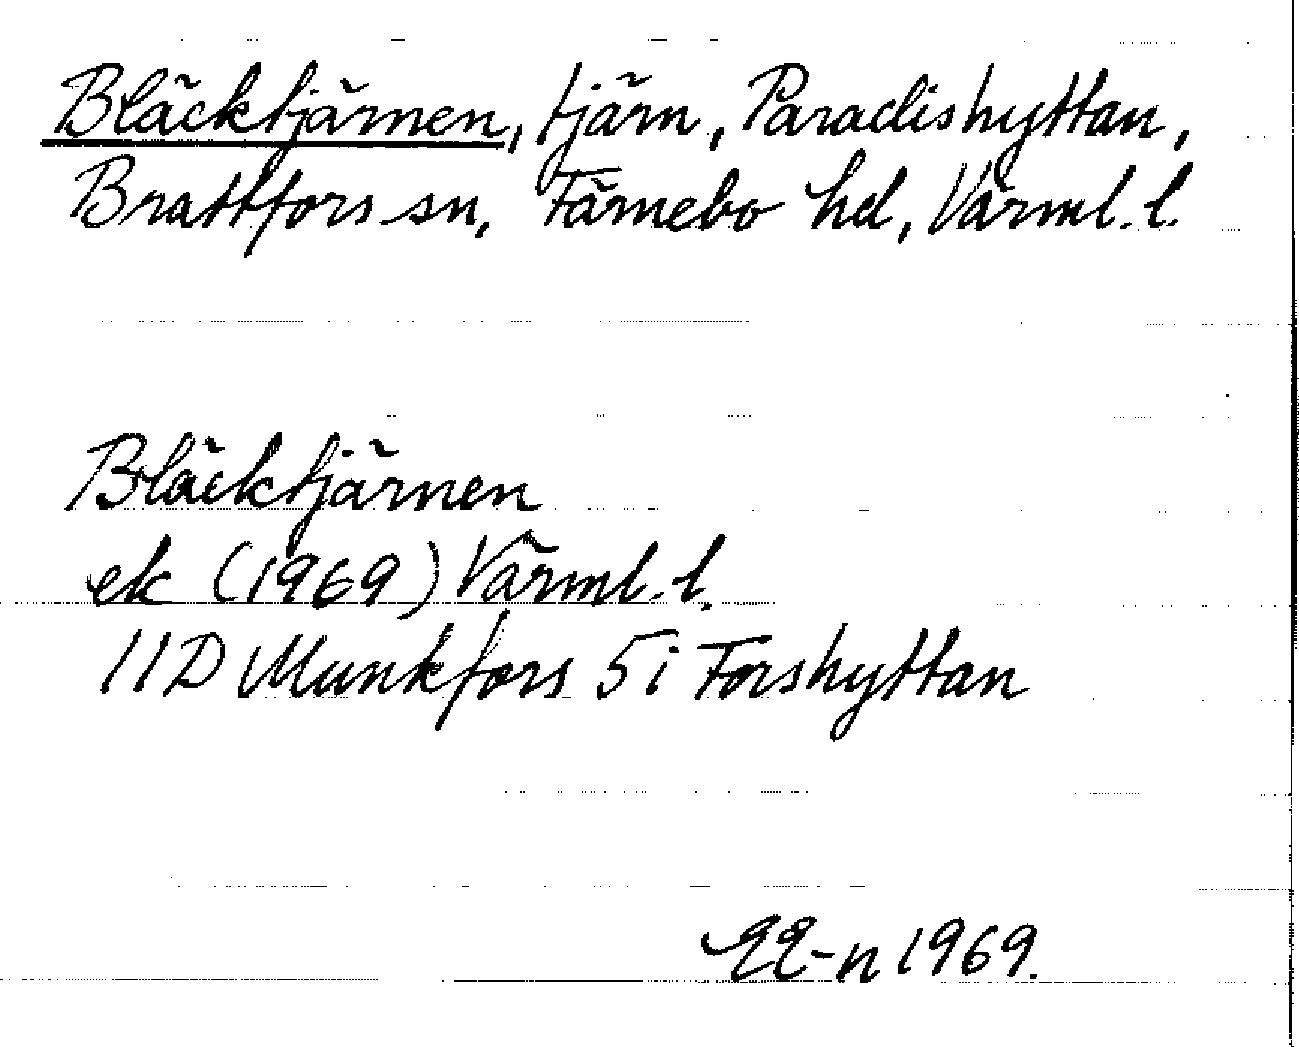 Bläcktjärnen, tjärn, Paradishyttan,
Brattfors sn, Färnebo hd, Värml. l.
Bläcktjärnen
ek (1969) Värml. l.
11D Munkfors 5i Forshyttan
EE-n 1969.